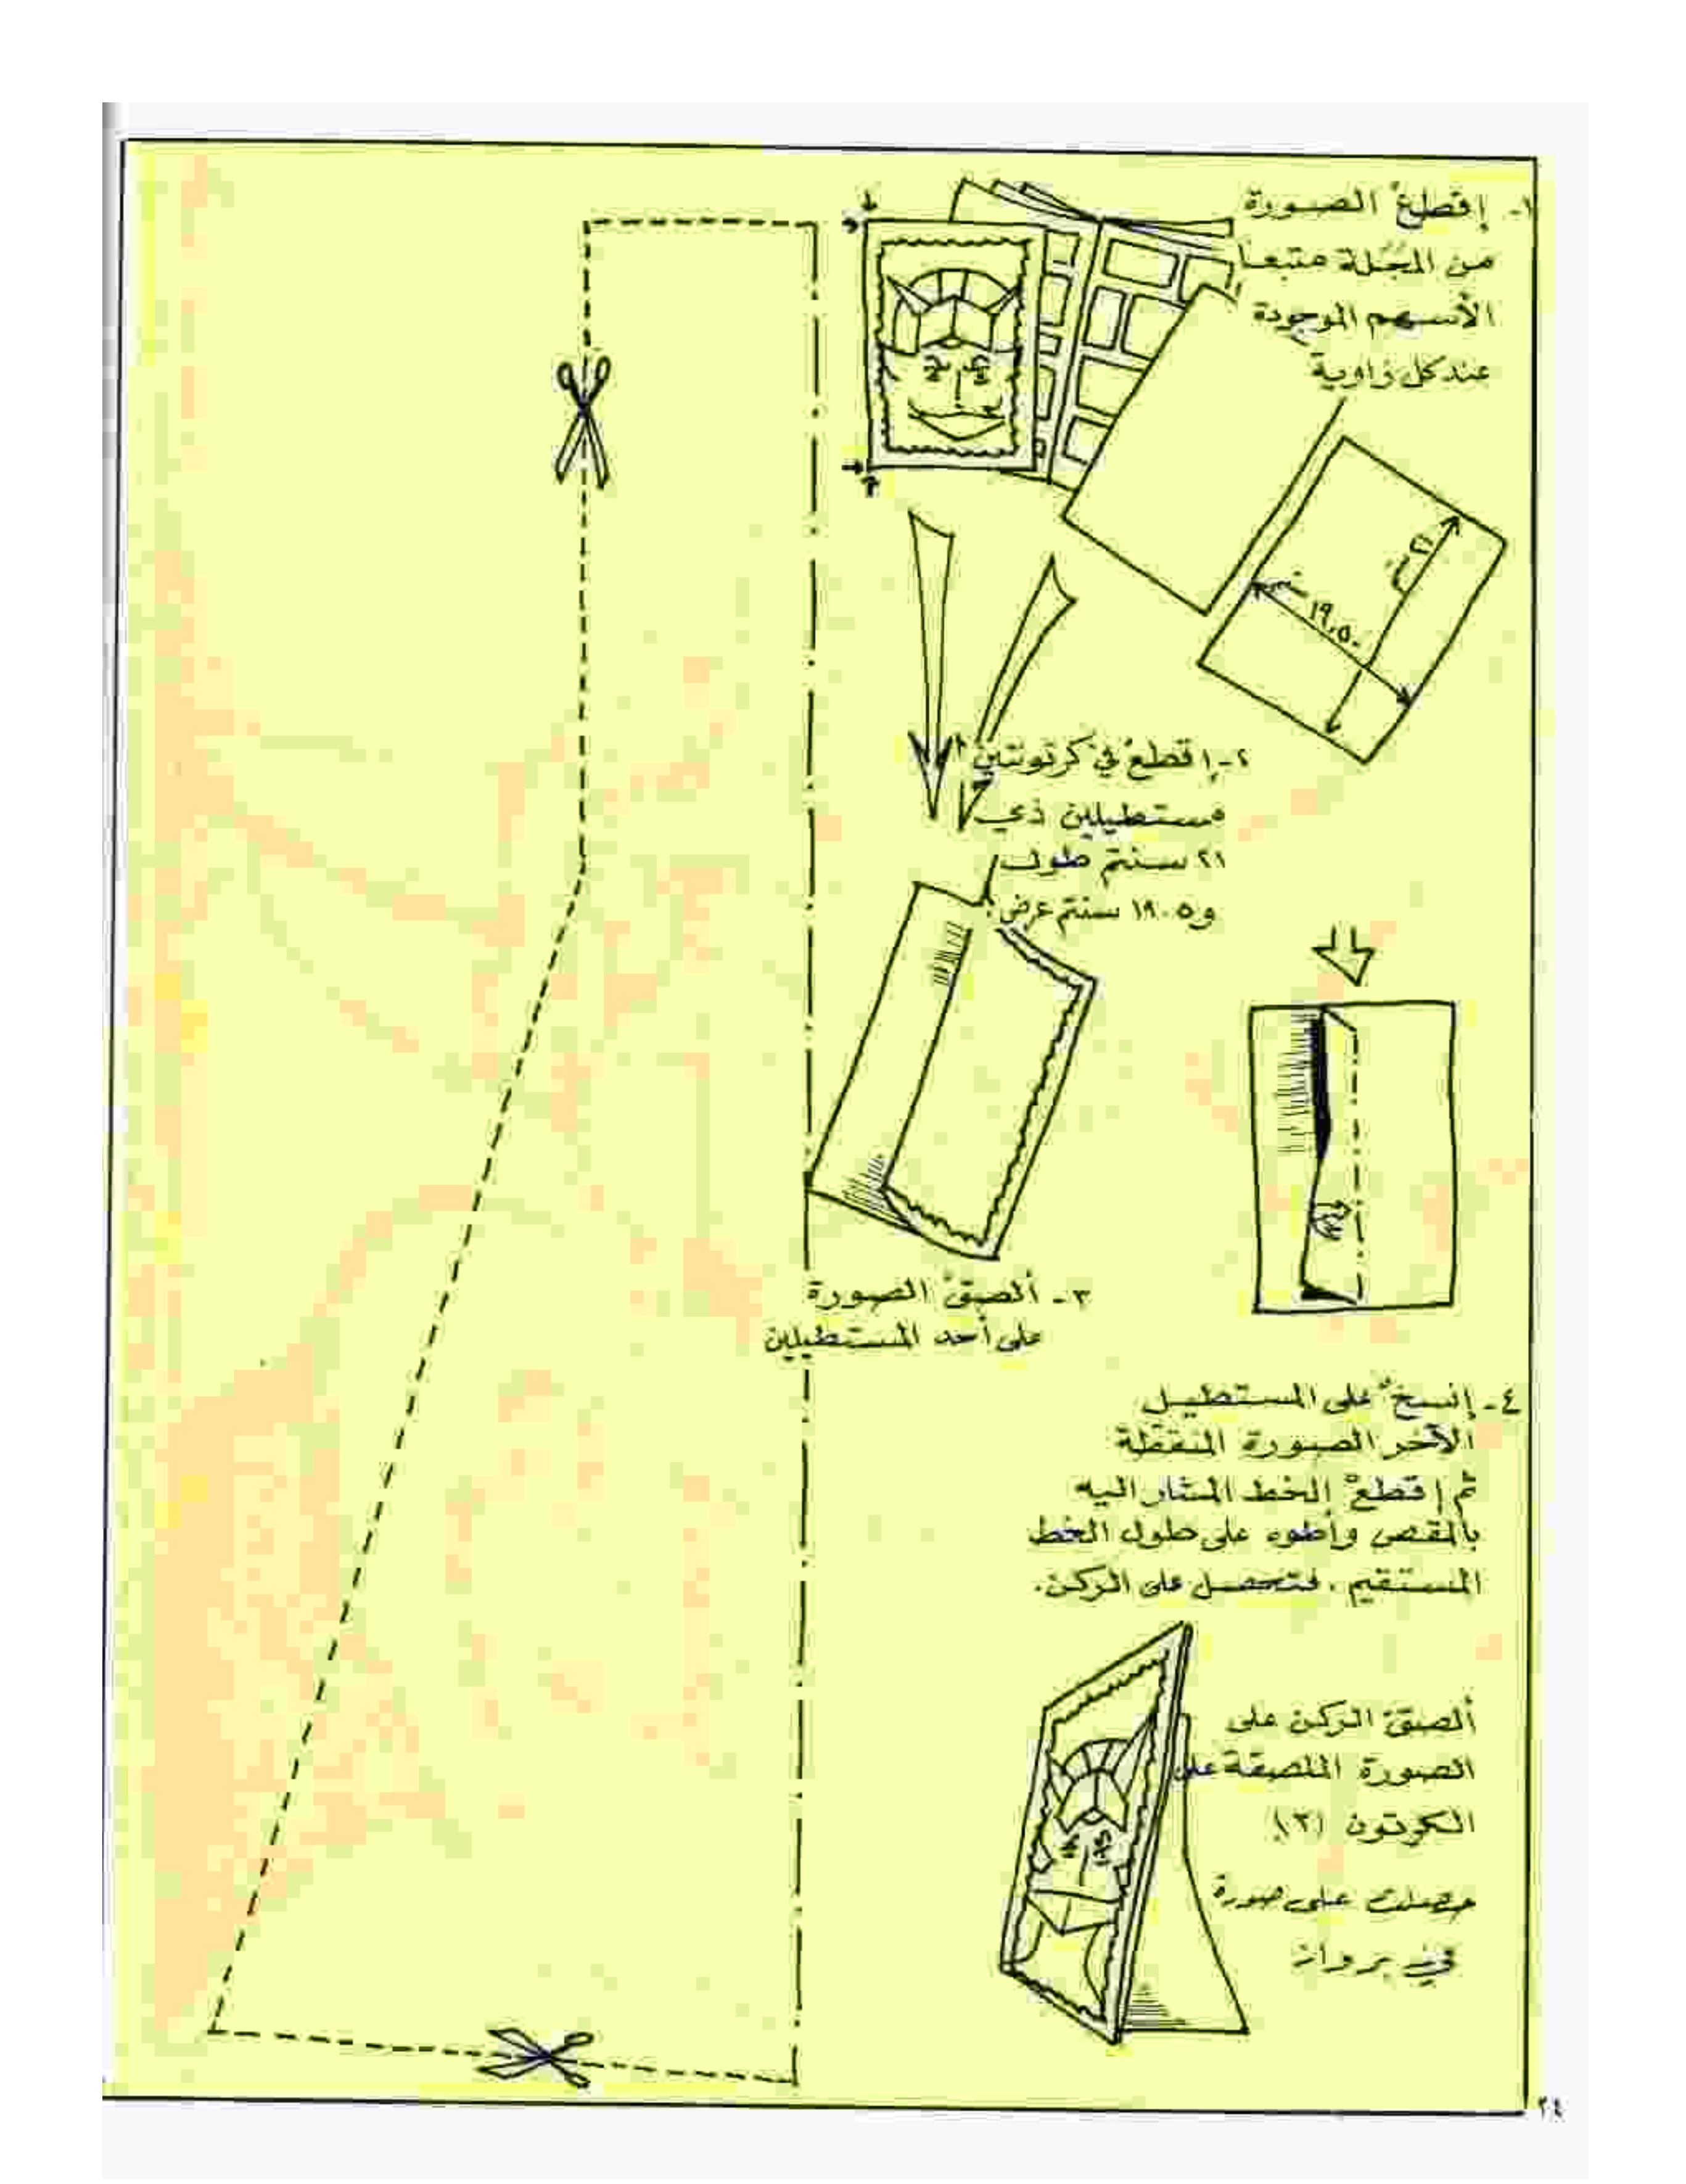 ١- إقطعْ الصورة
من المجلة متبعاً
الأسهم الموجودة
عند كل زاوية
٢١ سنتم
١٩،٥٠ سنتم
٢- إقطعْ في كرتونتين
مستطيلين ذي
٢١ سنتم طول
و١٩،٥ سنتم عرض
٣- ألصقْ الصورة
على أحد المستطيلين
٤- إنسخْ على المستطيل
الآخر الصورة المنقطة
ثم إقطعْ الخط المشار اليه
بالمقص وأطوه على طول الخط
المستقيم، فتحصل على الركن.
ألصقْ الركن على
الصورة الملصقة على
الكرتون (٣)
حصلت على صورة
في برواز
٢٤